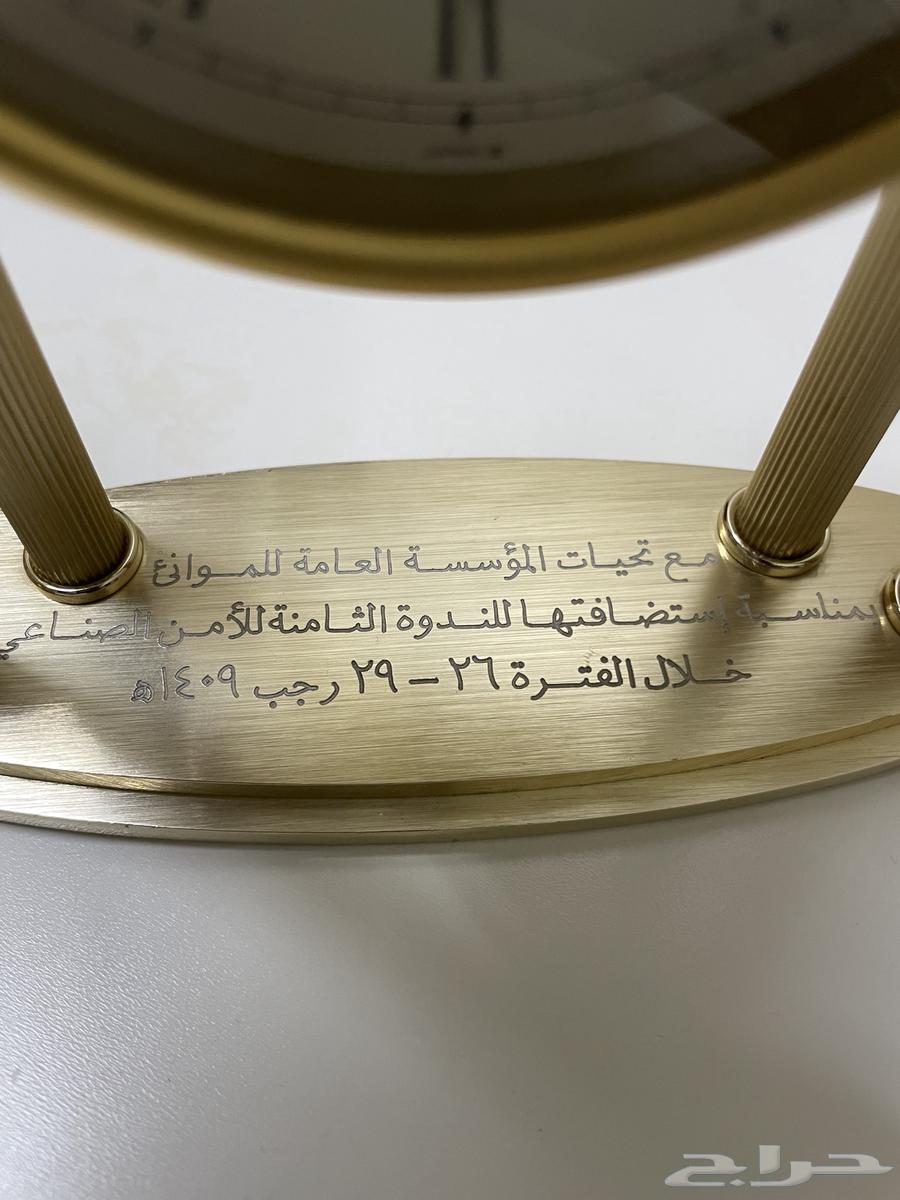 مع تحيات المؤسسة العامة للموانئ
بمناسبة إستضافتها للندوة الثامنة للأمن الصناعي
خلال الفترة ٢٦ - ٢٩ رجب ١٤٠٩هـ
حراج